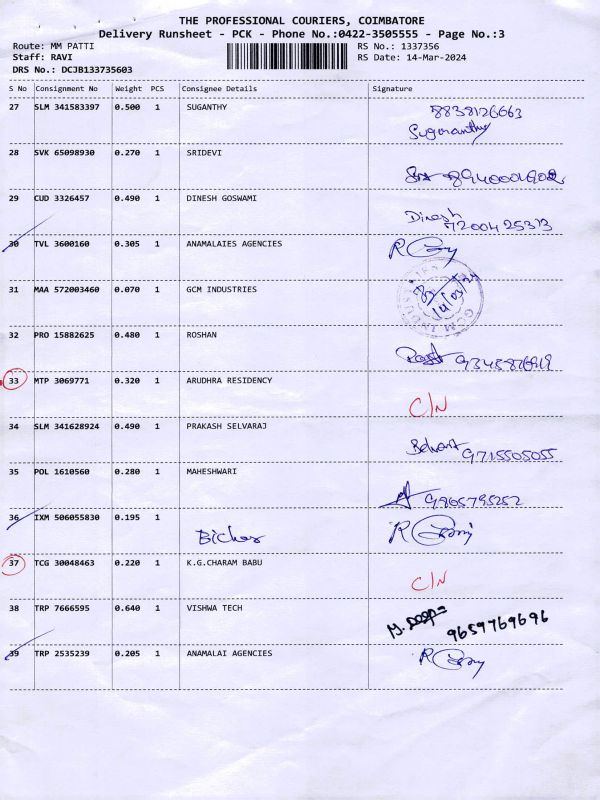 THE PROFESSIONAL COURIERS, COIMBATORE
Delivery Runsheet - PCK - Phone No.:0422-3505555 - Page No.:3
Route: MM PATTI RS No.: 1337356
Staff: RAVI RS Date: 14-Mar-2024
DRS No.: DCJB133735603
S No Consignment No Weight PCS Consignee Details Signature
27 SLM 341583397 0.500 1 SUGANTHY 8838126663
Sugananthy
28 SVK 65098930 0.270 1 SRIDEVI
29 CUD 3326457 0.490 1 DINESH GOSWAMI Dinesh
7200425313
30 TVL 3600160 0.305 1 ANAMALAIES AGENCIES
31 MAA 572003460 0.070 1 GCM INDUSTRIES 14/03/24
GCM INDUSTRIES
32 PRO 15882625 0.480 1 ROSHAN
33 MTP 3069771 0.320 1 ARUDHRA RESIDENCY C/N
34 SLM 341628924 0.490 1 PRAKASH SELVARAJ 9715505055
35 POL 1610560 0.280 1 MAHESHWARI 9865795252
36 IXM 506055830 0.195 1
37 TCG 30048463 0.220 1 K.G.CHARAM BABU C/N
38 TRP 7666595 0.640 1 VISHWA TECH M. Deepa
9659769696
39 TRP 2535239 0.205 1 ANAMALAI AGENCIES